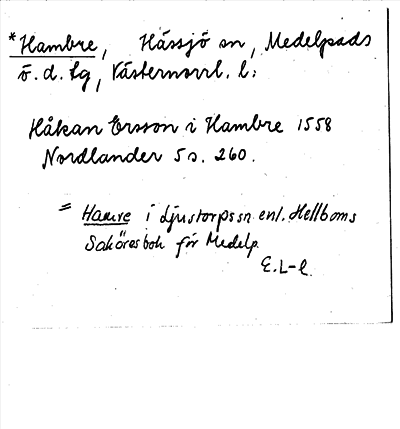 *Hambre, Hässjö sn, Medelpads
ö. d. tg, Västernorrl. l.
Håkan Ersson i Hambre 1558
Nordlander 5 s. 260.
= Hamre i Ljustorps sn enl. Hellboms
Saköresbok för Medelp.
E.L-l.